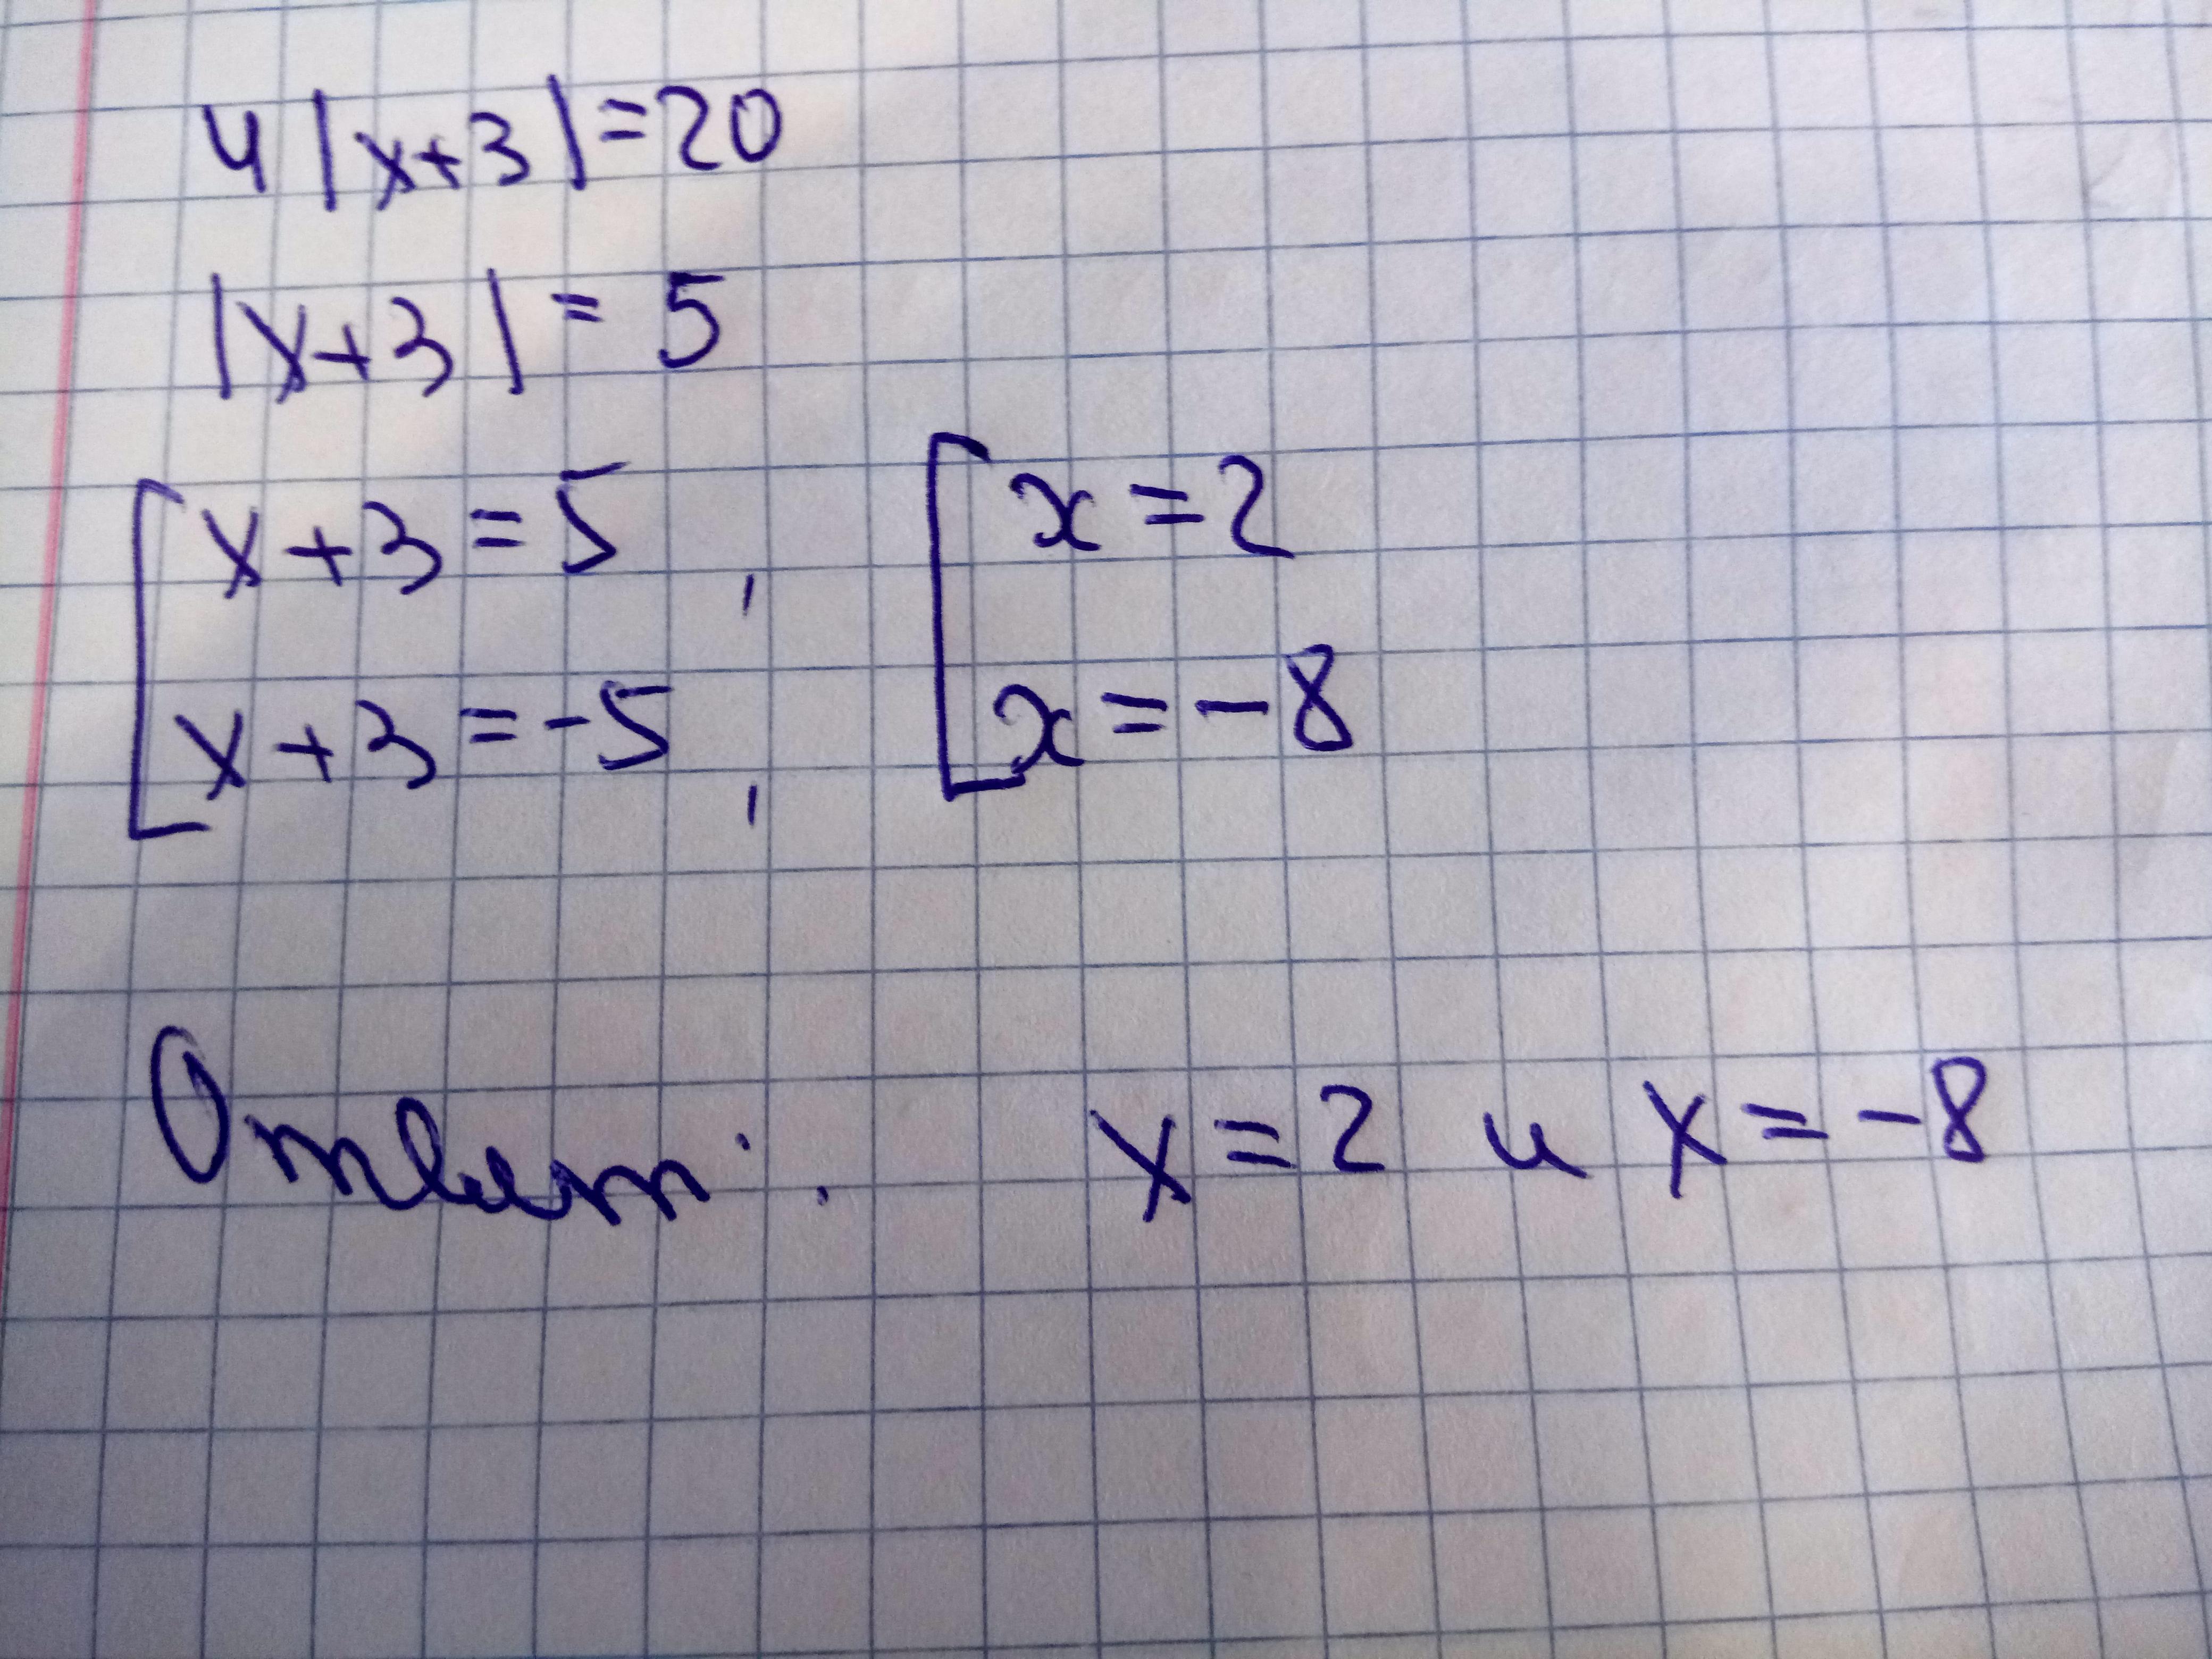 4|x+3|=20
|x+3|=5
[x+3=5, [x=2
x+3=-5, x=-8
Ответ: x=2 и x=-8